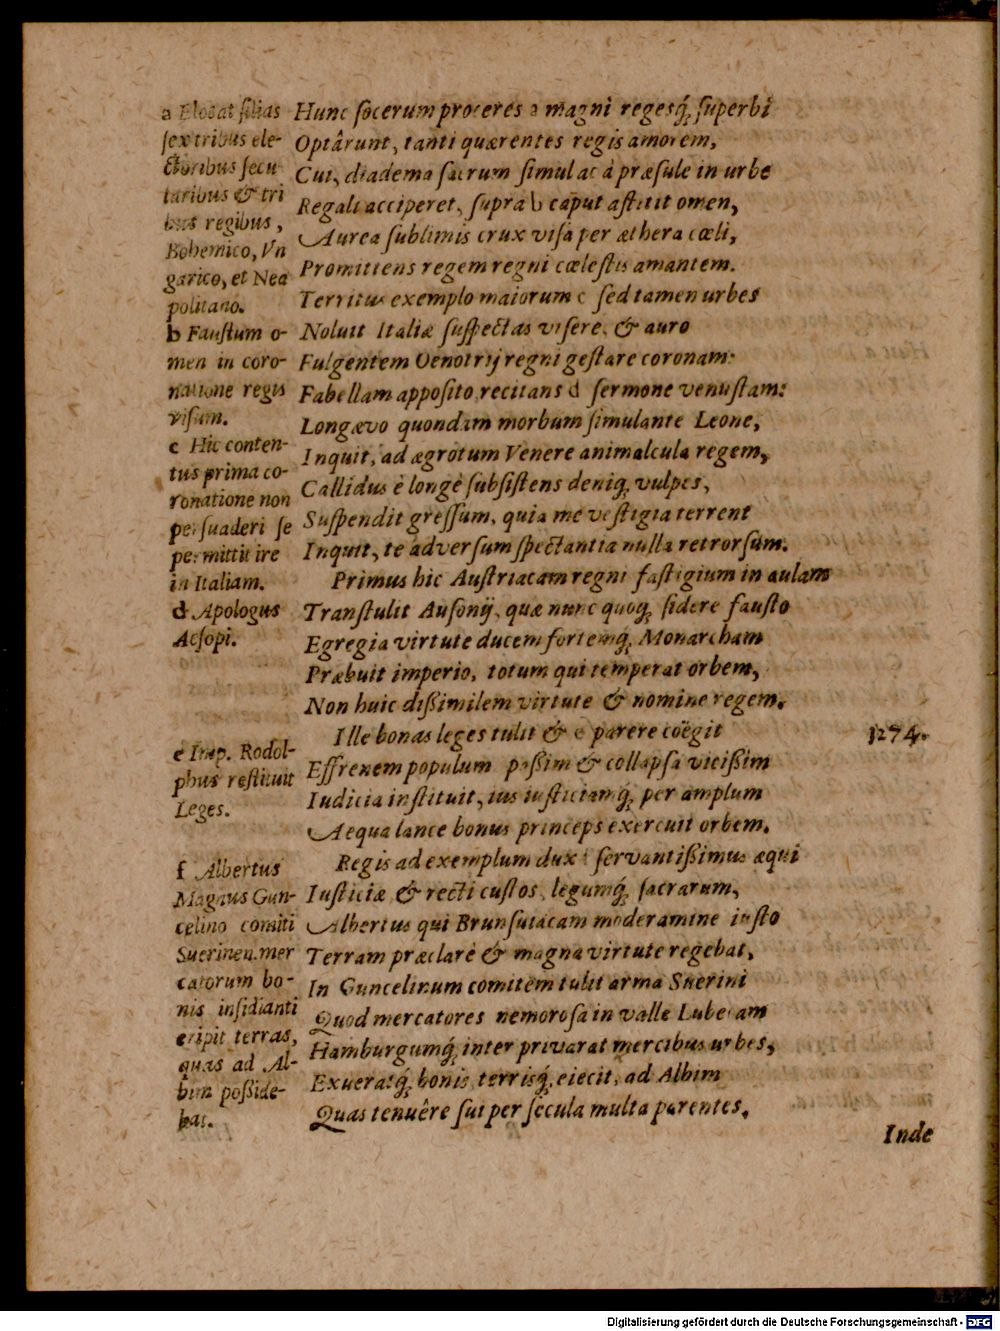 a Elocat filias
sex tribus ele-
ctoribus secu
laribus & tri
bus regibus,
Bohemico, Vn
garico, et Nea
politano.
b Faustum o-
men in coro-
natione regis
visum.
c Hic conten-
tus prima co-
ronatione non
persuaderi se
permittit ire
in Italiam.
d Apologus
Aesopi.
e Imp. Rodol-
phus restituit
Leges.
f Albertus
Magnus Gun-
celino comiti
Suerinen. mer
catorum bo-
nis insidianti
eripit terras,
quas ad Al-
bim poßide-
bat.
Hunc socerum proceres a magni regesq́; superbi
Optârunt, tanti quærentes regis amorem,
Cui, diadema sacrum simul ac à præsule in urbe
Regali acciperet, supra b caput astitit omen,
Aurea sublimis crux visa per æthera cœli,
Promittens regem regni cœlestis amantem.
Territus exemplo maiorum c sed tamen urbes
Noluit Italiæ suspectas visere, & auro
Fulgentem Oenotrij regni gestare coronam:
Fabellam apposito recitans d sermone venustam:
Longævo quondam morbum simulante Leone,
Inquit, ad ægrotum Venere animalcula regem,
Callidus è longè subsistens deniq; vulpes,
Suspendit gressum, quia me vestigia terrent
Inquit, te adversum spectantia nulla retrorsùm.
Primus hic Austriacam regni fastigium in aulam
Transtulit Ausonij, quæ nunc quoq; sidere fausto
Egregia virtute ducem fortemq́; Monarcham
Præbuit imperio, totum qui temperat orbem,
Non huic dißimilem virtute & nomine regem.
Ille bonas leges tulit & e parere coëgit
1274.
Effrenem populum paßim & collapsa vicißim
Iudicia instituit, ius iusticiamq́; per amplum
Aequa lance bonus princeps exercuit orbem.
Regis ad exemplum dux f servantißimus æqui
Iusticiæ & recti custos, legumq́; sacrarum,
Albertus qui Brunsuiacam moderamine iusto
Terram præclarè & magna virtute regebat,
In Guncelinum comitem tulit arma Suerini
Quod mercatores nemorosa in valle Lubecam
Hamburgumq́; inter privarat mercibus urbes,
Exueratq́; bonis, terrisq́; eiecit, ad Albim
Quas tenuêre sui per secula multa parentes.
Inde
Digitalisierung gefördert durch die Deutsche Forschungsgemeinschaft - DFG